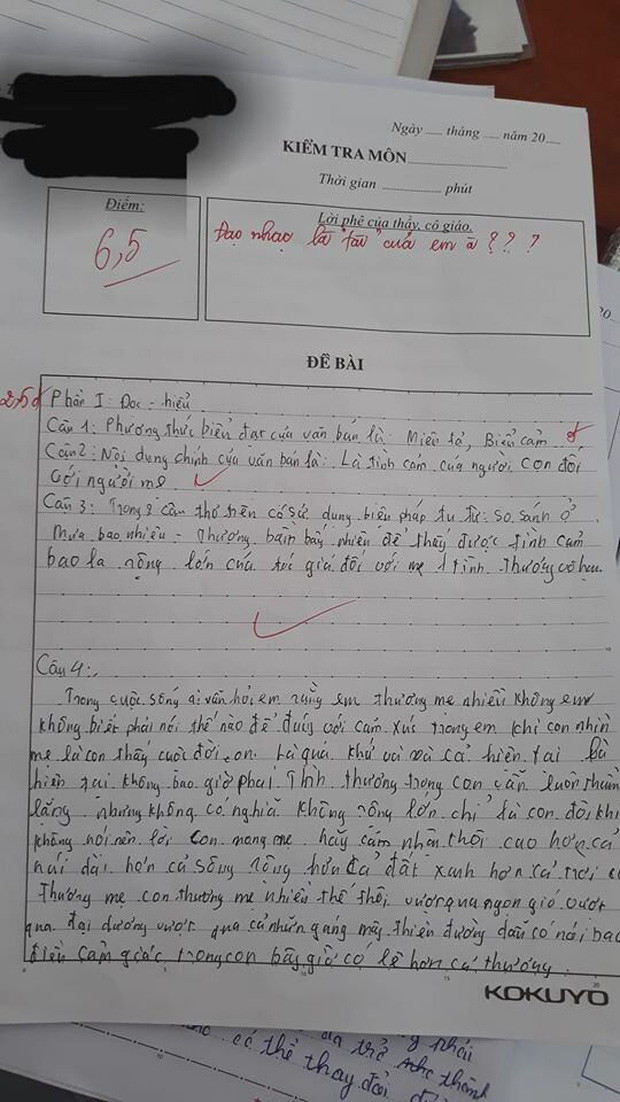 Ngày ___ tháng ___ năm 20___
KIỂM TRA MÔN
Thời gian ______ phút
Điểm:
6,5
Lời phê của thầy, cô giáo.
Đạo nhạc là "tài" của em à ? ? ?
ĐỀ BÀI
Phần I: Đọc - hiểu
Câu 1: Phương thức biểu đạt của văn bản là: Miêu tả, Biểu cảm
Câu 2: Nội dung chính của văn bản là: Là tình cảm của người con đối
với người mẹ
Câu 3: Trong 2 câu thơ trên có sử dụng biện pháp tu từ: so sánh ở
mưa bao nhiêu - thương bấy nhiêu để thấy được tình cảm
bao la rộng lớn của tác giả đối với mẹ 1 tình thương vô hạn
Câu 4:
Trong cuộc sống ai vẫn hỏi em rằng em thương mẹ nhiều không em
không biết phải nói thế nào để đúng với cảm xúc trong em khi con nhìn
mẹ là con thấy cuộc đời con. Là quá khứ và cả hiện tại là
hiện tại không bao giờ phai. Tình thương trong con vẫn luôn thầm
lặng nhưng không có nghĩa không rộng lớn chỉ là con đôi khi
không nói nên lời con mong mẹ hãy cảm nhận thôi cao hơn cả
núi dài hơn cả sông rộng hơn cả đất xanh hơn cả trời
Thương mẹ con thương mẹ nhiều thế thôi vượt qua ngọn gió vượt
qua đại dương vượt qua cả những áng mây thiên đường dẫu có nói bao
điều cảm giác trong con bây giờ có lẽ hơn cả thương.
KOKUYO
trở thành
có thể thay đổi